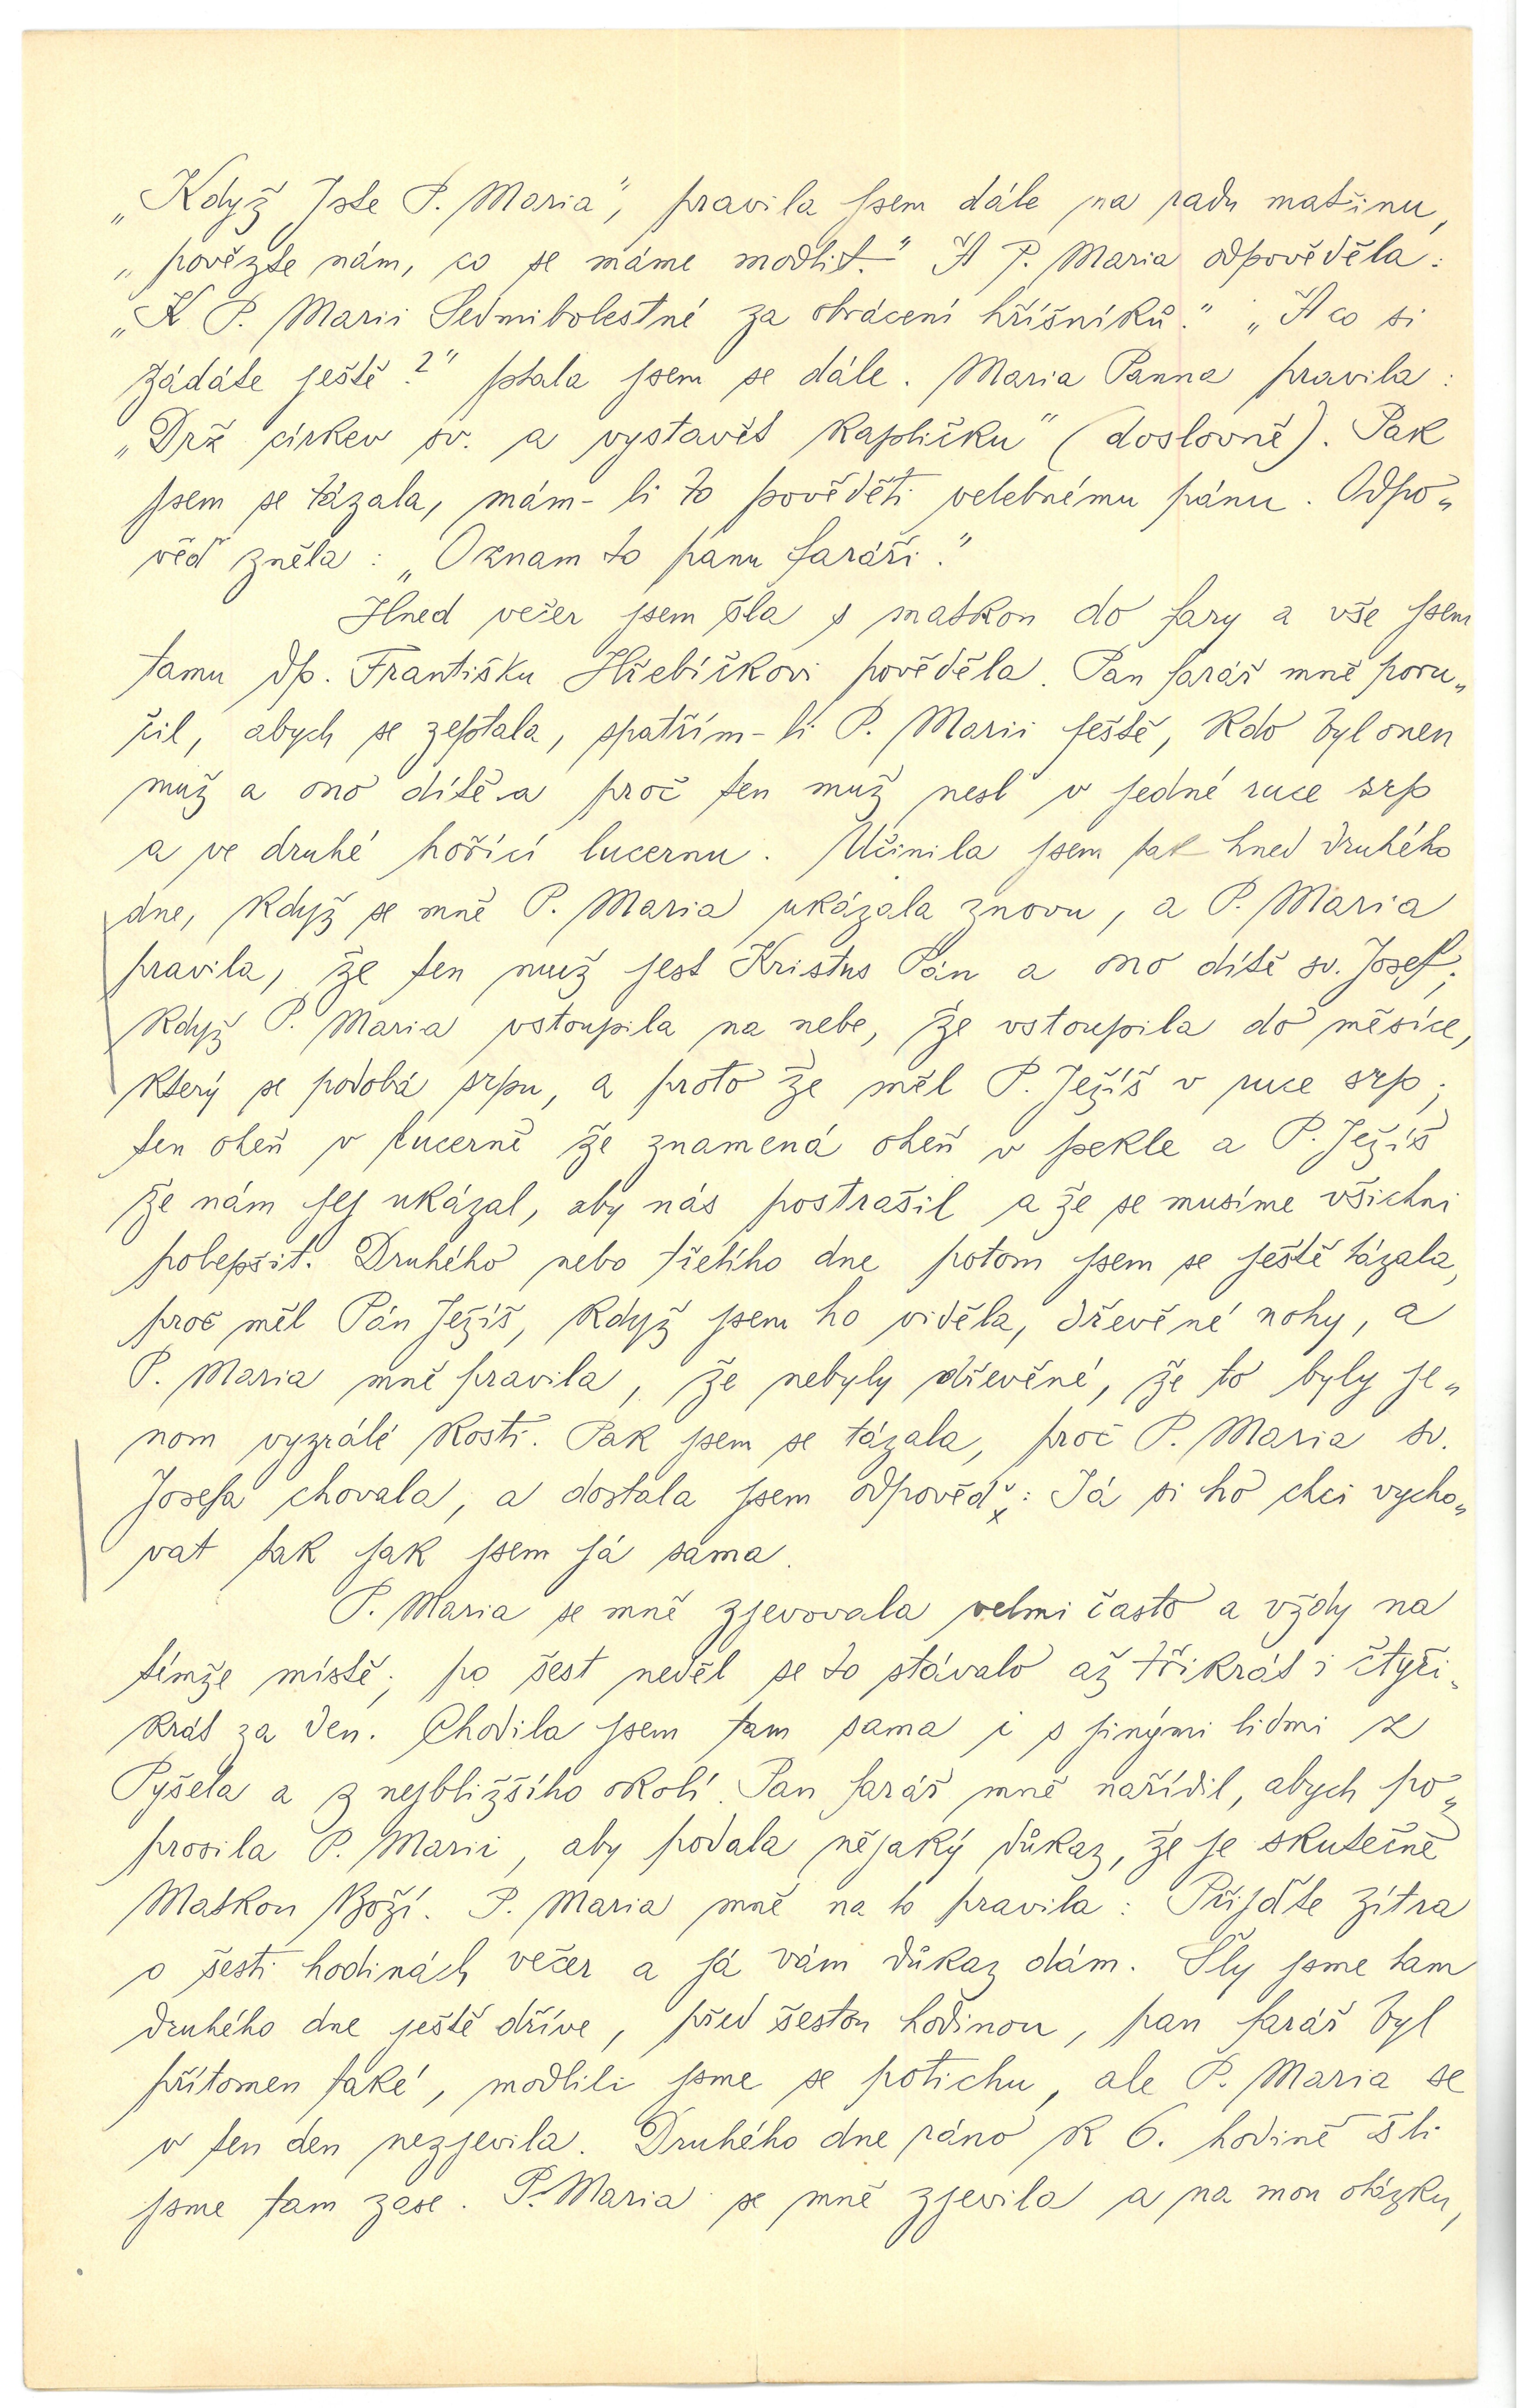 „Když Jste P. Maria“, pravila jsem dále na radu matčinu,
„povězte nám, co se máme modlit.“ A P. Maria odpověděla:
„K P. Marii Sedmibolestné za obrácení hříšníků.“ „A co si
žádáte ještě?“ ptala jsem se dále. Maria Panna pravila:
„Drž církev sv. a vystavět kapličku“ (doslovně). Pak
jsem se tázala, mám-li to pověděti velebnému pánu. Odpo„
věď zněla: „Oznam to panu faráři.“
Hned večer jsem šla s matkou do fary a vše jsem
tamu dp. Františku Hřebíčkovi pověděla. Pan farář mně poru„
čil, abych se zeptala, spatřím-li P. Marii ještě, kdo byl onen
muž a ono dítě a proč ten muž nesl v jedné ruce srp
a ve druhé hořící lucernu. Učinila jsem tak hned druhého
dne, když se mně P. Maria ukázala znovu, a P. Maria
pravila, že ten muž jest Kristus Pán a ono dítě sv. Josef;
když P. Maria vstoupila na nebe, že vstoupila do měsíce,
který se podobá srpu, a proto že měl P. Ježíš v ruce srp;
ten oheň v lucerně že znamená oheň v pekle a P. Ježíš
že nám jej ukázal, aby nás postrašil a že se musíme všichni
polepšit. Druhého nebo třetího dne potom jsem se ještě tázala,
proč měl Pán Ježíš, když jsem ho viděla, dřevěné nohy, a
P. Maria mně pravila, že nebyly dřevěné, že to byly je„
nom vyzrálé kosti. Pak jsem se tázala, proč P. Maria sv.
Josefa chovala, a dostala jsem odpověď: Já si ho chci vycho„
vat tak jak jsem já sama.
P. Maria se mně zjevovala velmi často a vždy na
témže místě; po šest neděl se to stávalo až třikrát i čtyři„
krát za den. Chodila jsem tam sama i s jinými lidmi z
Pyšela a z nejbližšího okolí. Pan farář mně nařídil, abych po„
prosila P. Marii, aby podala nějaký důkaz, že je skutečně
Matkou Boží. P. Maria mně na to pravila: Přijďte zítra
o šesti hodinách večer a já vám důkaz dám. Šly jsme tam
druhého dne ještě dříve, před šestou hodinou, pan farář byl
přítomen také, modlili jsme se potichu, ale P. Maria se
v ten den nezjevila. Druhého dne ráno k 6. hodině šli
jsme tam zase. P. Maria se mně zjevila a na mou otázku,